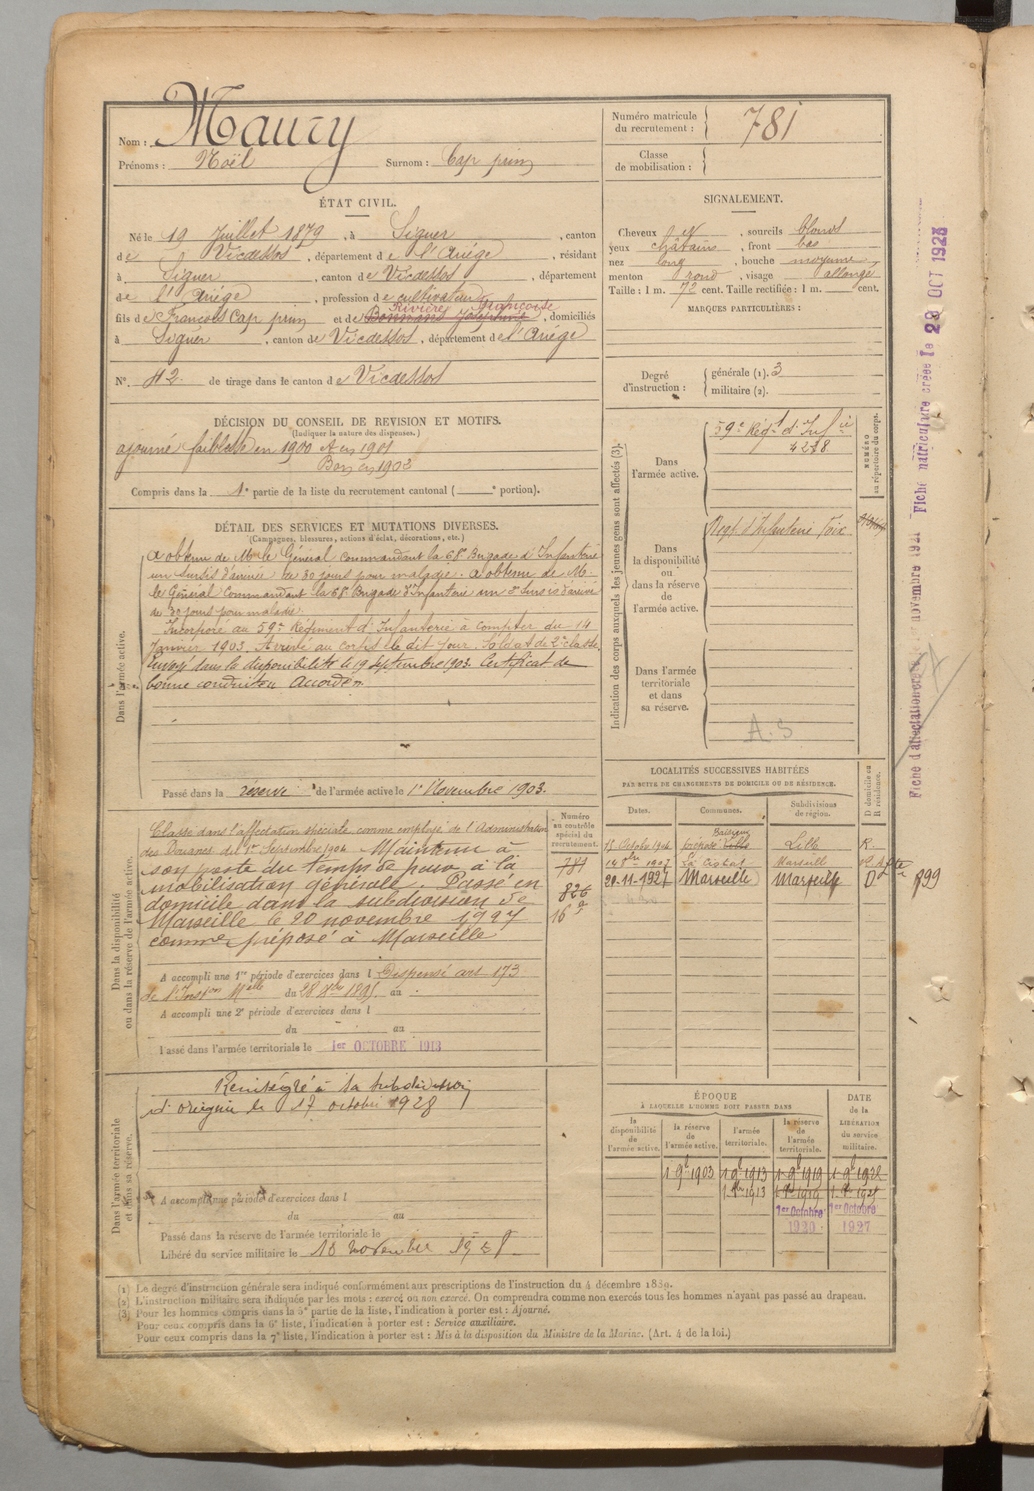 Nom : Maury
Prénoms : Noël Surnom : Cap prim
ÉTAT CIVIL.
Né le 19 Juillet 1879, à Siguer, canton
de Vicdessos, département de l'Ariége, résidant
à Siguer, canton de Vicdessos, département
de l'Ariége, profession de cultivateur
Rivière Françoise
fils de François Cap prim et de Josephine, domiciliés
à Siguer, canton de Vicdessos, département de l'Ariége
N° 42 de tirage dans le canton de Vicdessos
DÉCISION DU CONSEIL DE REVISION ET MOTIFS.
(Indiquer la nature des dispenses.)
ajourné faiblesse en 1900 et en 1901
Bon en 1902
Compris dans la 1e partie de la liste du recrutement cantonal ( e portion).
DÉTAIL DES SERVICES ET MUTATIONS DIVERSES.
(Campagnes, blessures, actions d'éclat, décorations, etc.)
Dans l'armée active.
a obtenu de M. le Général commandant la 68e Brigade d'Infanterie
un sursis d'arrivée de 30 jours pour maladie. a obtenu de M.
le Général Commandant la 68e Brigade d'Infanterie un 2e sursis d'arrivée
de 30 jours pour maladie.
Incorporé au 59e Régiment d'Infanterie à compter du 14
Janvier 1903. Arrivé au corps le dit jour. Soldat de 2e classe.
Envoyé dans la disponibilité le 19 septembre 1903. Certificat de
bonne conduite accordé
Passé dans la réserve de l'armée active le 1er Novembre 1903.
Dans la disponibilité
ou dans la réserve de l'armée active.
Classé dans l'affectation spéciale comme employé de l'Administration
des Douanes du 1er Septembre 1904 Maintenu à
son poste du temps de paix à la
mobilisation générale. Passé en
domicile dans la subdivision de
Marseille le 20 novembre 1927
comme préposé à Marseille
A accompli une 1re période d'exercices dans l Dispensé art 173
de l'Instion Mlle du 28 Xbre 1895 au
A accompli une 2e période d'exercices dans l
du au
Passé dans l'armée territoriale le 1er OCTOBRE 1913
Numéro
au contrôle
spécial du
recrutement.
781
826
16
Dans l'armée territoriale
et dans sa réserve.
Réintégré à la subdivision
d'origine le 17 octobre 1928
A accompli une période d'exercices dans l
du au
Passé dans la réserve de l'armée territoriale le
Libéré du service militaire le 10 novembre 1928
Numéro matricule
du recrutement : 781
Classe
de mobilisation :
SIGNALEMENT.
Cheveux N, sourcils blonds
yeux châtains, front bas
nez long, bouche moyenne,
menton rond, visage allongé
Taille : 1 m. 72 cent. Taille rectifiée : 1 m. cent.
MARQUES PARTICULIÈRES :
Degré
d'instruction :
générale (1). 3
militaire (2).
Indication des corps auxquels les jeunes gens sont affectés (3).
NUMÉRO
au répertoire du corps.
Dans
l'armée active.
59e Régt d'Infie
4278
Dans
la disponibilité
ou dans
la réserve
de
l'armée active.
Régt d'Infanterie Foix
Dans l'armée
territoriale
et dans
sa réserve.
A. S
LOCALITÉS SUCCESSIVES HABITÉES
PAR SUITE DE CHANGEMENTS DE DOMICILE OU DE RÉSIDENCE.
Dates. Communes. Subdivisions
de région.
D domicile ou
R résidence.
18 Octobre 1904 préposé Lille R.
14 1907 La Ciotat Marseille
20-11-1927 Marseille Marseille D 899
ÉPOQUE
À LAQUELLE L'HOMME DOIT PASSER DANS
la
disponibilité
de
l'armée active.
la réserve
de
l'armée active.
l'armée
territoriale.
la réserve
de
l'armée
territoriale.
DATE
de la
LIBÉRATION
du service
militaire.
1 9b 1903 1 9b 1913 1 9b 1919 1 9b 1928
1er Octobre 1er Octobre
1920 1927
Fiche d'affectation créée novembre 1921
Fiche matriculaire créée le 29 OCT 1928
(1) Le degré d'instruction générale sera indiqué conformément aux prescriptions de l'instruction du 4 décembre 1889.
(2) L'instruction militaire sera indiquée par les mots : exercé ou non exercé. On comprendra comme non exercés tous les hommes n'ayant pas passé au drapeau.
(3) Pour les hommes compris dans la 5e partie de la liste, l'indication à porter est : Ajourné.
Pour ceux compris dans la 6e liste, l'indication à porter est : Service auxiliaire.
Pour ceux compris dans la 7e liste, l'indication à porter est : Mis à la disposition du Ministre de la Marine. (Art. 4 de la loi.)